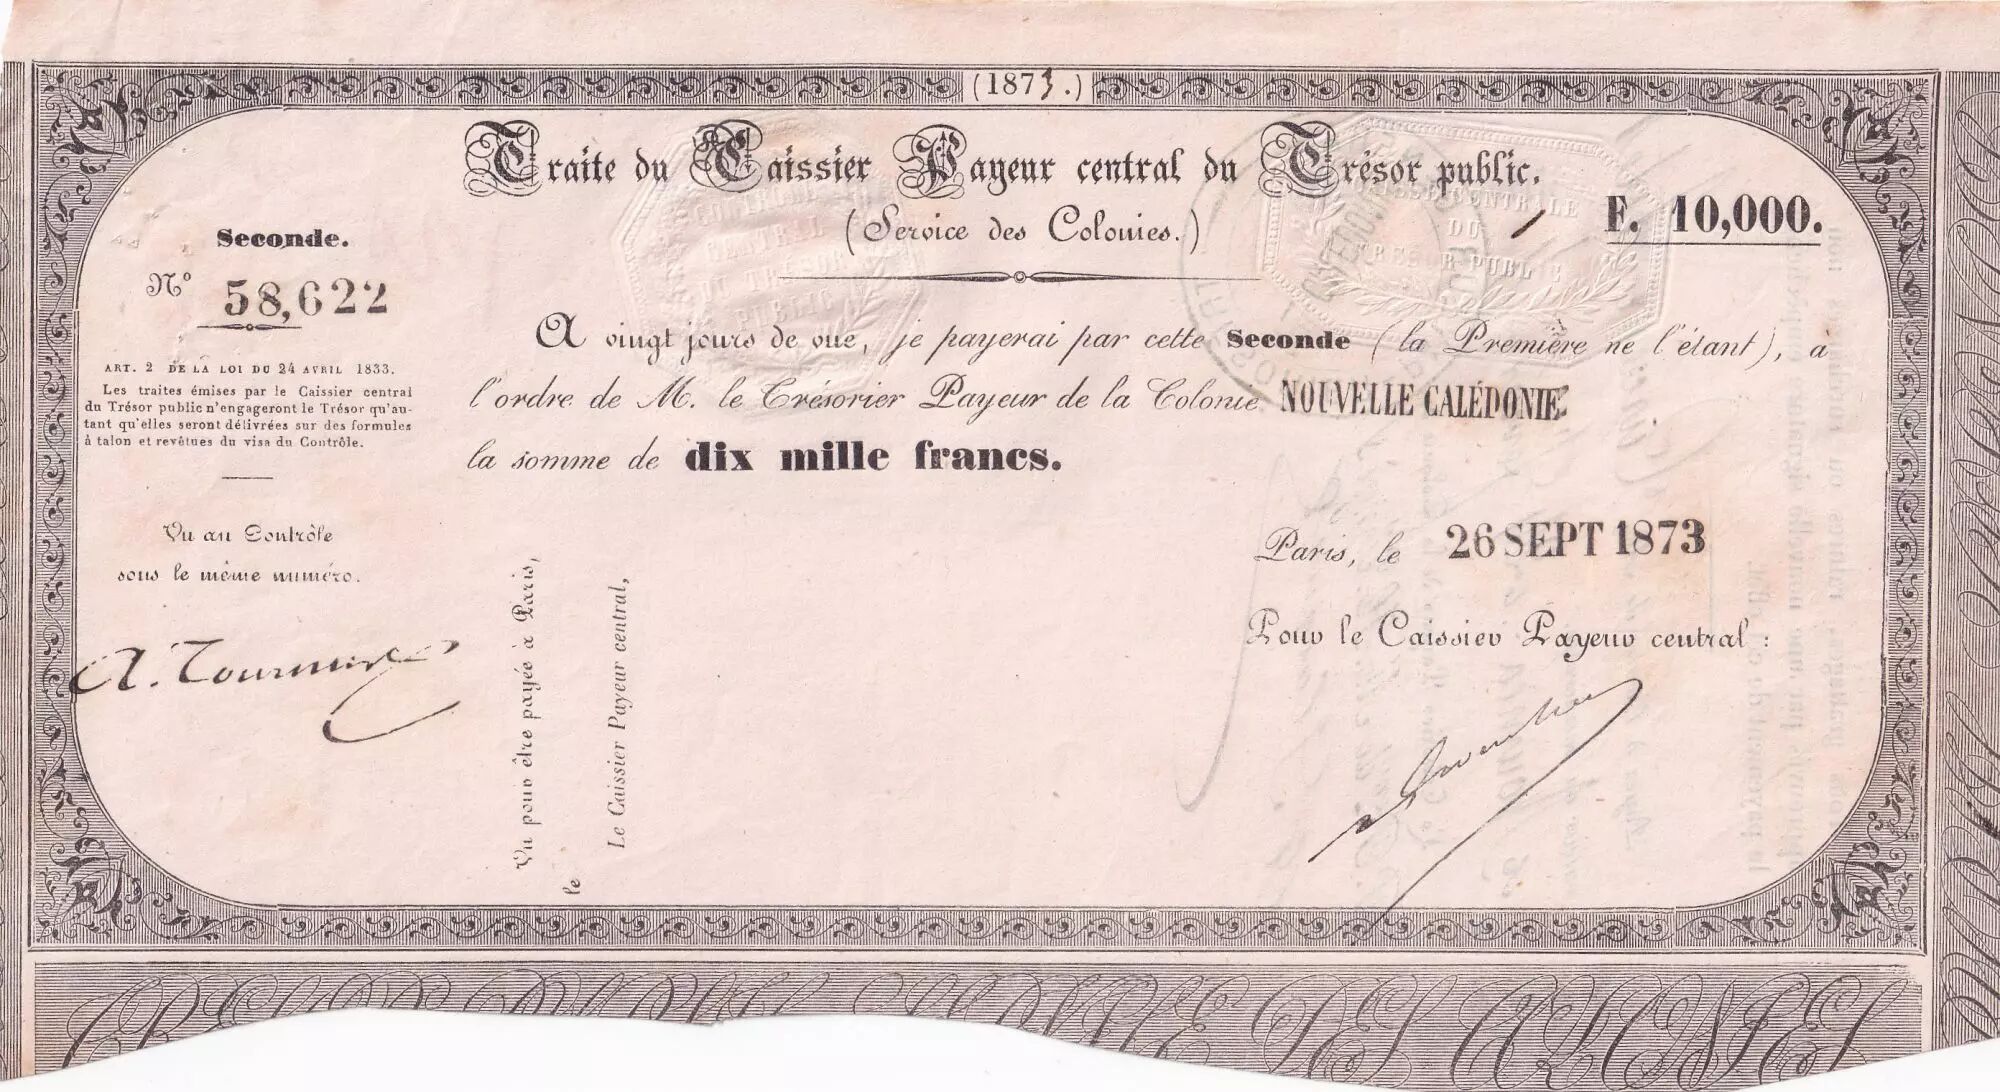 (1873.)
Traite du Caissier Payeur central du Trésor public.
(Service des Colonies.)
F. 10,000.
Seconde.
Nº 58,622
ART. 2 DE LA LOI DU 24 AVRIL 1833.
Les traites émises par le Caissier central
du Trésor public n'engageront le Trésor qu'au-
tant qu'elles seront délivrées sur des formules
à talon et revêtues du visa du Contrôle.
Vu au Contrôle
sous le même numéro.
A vingt jours de vue, je payerai par cette Seconde (la Première ne l'étant), a
l'ordre de M. le Trésorier Payeur de la Colonie NOUVELLE CALÉDONIE
la somme de dix mille francs.
Paris, le 26 SEPT 1873
Pour le Caissier Payeur central :
Vu pour être payée à Paris,
le
Le Caissier Payeur central,
CONTROLE
CENTRAL
DU TRÉSOR
PUBLIC
CENTRALE
DU
TRESOR PUBLIC